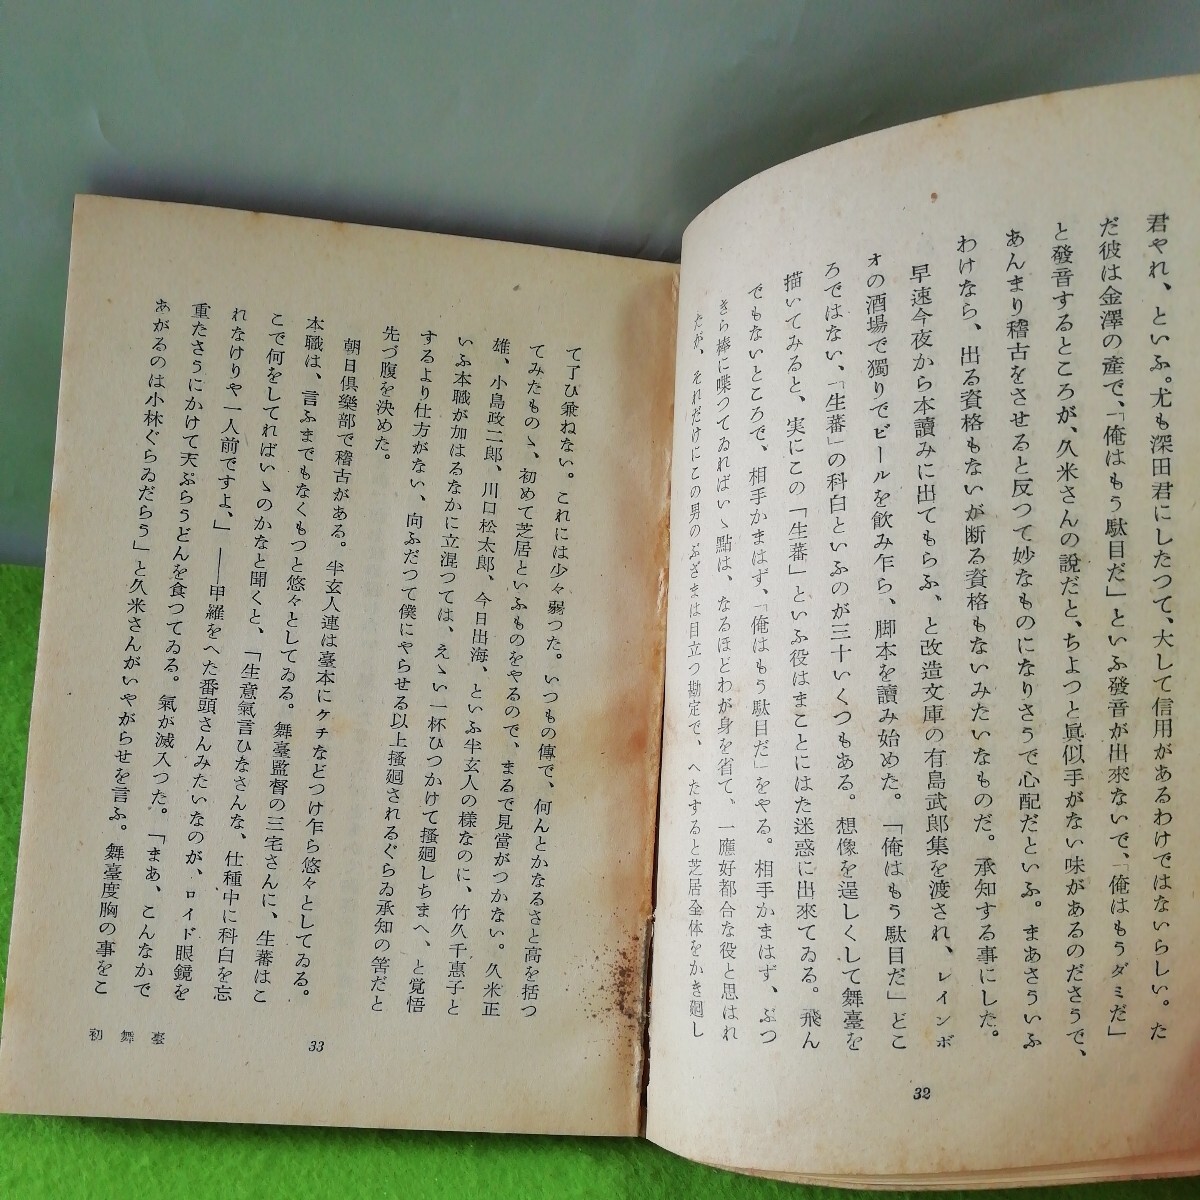 君やれ、といふ。尤も深田君にしたつて、大して信用があるわけではないらしい。た
だ彼は金澤の産で、「俺はもう駄目だ」といふ發音が出來ないで、「俺はもうダミだ」
と發音するところが、久米さんの說だと、ちよつと眞似手がない味があるのださうで、
あんまり稽古をさせると反つて妙なものになりさうで心配だといふ。まあさういふ
わけなら、出る資格もないが断る資格もないみたいなものだ。承知する事にした。
早速今夜から本讀みに出てもらふ、と改造文庫の有島武郎集を渡され、レインボ
オの酒場で獨りでビールを飲み乍ら、脚本を讀み始めた。「俺はもう駄目だ」どこ
ろではない、「生蕃」の科白といふのが三十いくつもある。想像を逞しくして舞臺を
描いてみると、実にこの「生蕃」といふ役はまことにはた迷惑に出來てゐる。飛ん
でもないところで、相手かまはず、「俺はもう駄目だ」をやる。相手かまはず、ぶつ
きら棒に喋つてゐればいゝ點は、なるほどわが身を省て、一應好都合な役と思はれ
たが、それだけにこの男のぶざまは目立つ勘定で、へたすると芝居全体をかき廻し
32
て了ひ兼ねない。これには少々弱つた。いつもの傳で、何んとかなるさと高を括つ
てみたものゝ、初めて芝居といふものをやるので、まるで見當がつかない。久米正
雄、小島政二郎、川口松太郎、今日出海、といふ半玄人の様なのに、竹久千惠子と
いふ本職が加はるなかに立混つては、えゝい一杯ひつかけて搔廻しちまへ、と覚悟
するより仕方がない、向ふだつて僕にやらせる以上搔廻されるぐらゐ承知の筈だと
先づ腹を決めた。
朝日倶樂部で稽古がある。半玄人連は臺本にケチなどつけ乍ら悠々としてゐる。
本職は、言ふまでもなくもつと悠々としてゐる。舞臺監督の三宅さんに、生蕃はこ
こで何をしてればいゝのかなと聞くと、「生意氣言ひなさんな、仕種中に科白を忘
れなけりや一人前ですよ、」――甲羅をへた番頭さんみたいなのが、ロイド眼鏡を
重たさうにかけて天ぷらうどんを食つてゐる。氣が滅入つた。「まあ、こんなかで
あがるのは小林ぐらゐだらう」と久米さんがいやがらせを言ふ。舞臺度胸の事をこ
33
初舞臺